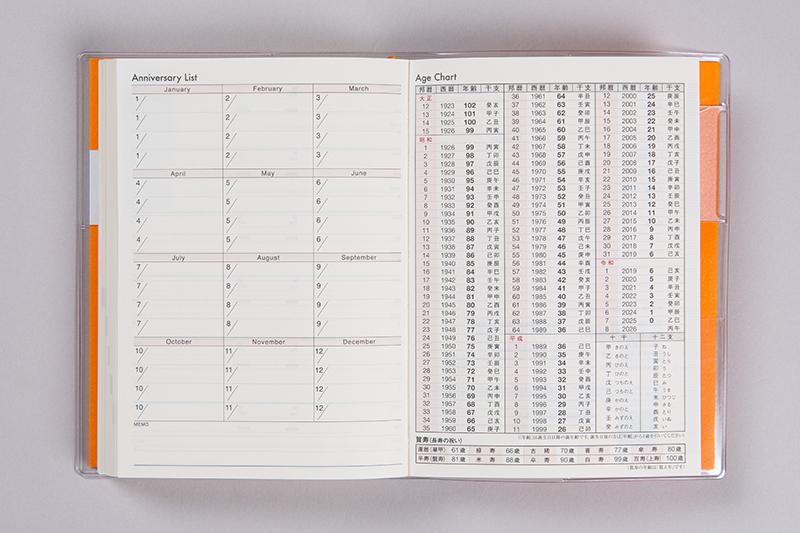 Anniversary List
January February March
1/ 2/ 3/
1/ 2/ 3/
1/ 2/ 3/
1/ 2/ 3/
April May June
4/ 5/ 6/
4/ 5/ 6/
4/ 5/ 6/
4/ 5/ 6/
July August September
7/ 8/ 9/
7/ 8/ 9/
7/ 8/ 9/
7/ 8/ 9/
October November December
10/ 11/ 12/
10/ 11/ 12/
10/ 11/ 12/
10/ 11/ 12/
MEMO
Age Chart
邦暦 西暦 年齢 干支
大正
12 1923 102 癸亥
13 1924 101 甲子
14 1925 100 乙丑
15 1926 99 丙寅
昭和
1 1926 99 丙寅
2 1927 98 丁卯
3 1928 97 戊辰
4 1929 96 己巳
5 1930 95 庚午
6 1931 94 辛未
7 1932 93 壬申
8 1933 92 癸酉
9 1934 91 甲戌
10 1935 90 乙亥
11 1936 89 丙子
12 1937 88 丁丑
13 1938 87 戊寅
14 1939 86 己卯
15 1940 85 庚辰
16 1941 84 辛巳
17 1942 83 壬午
18 1943 82 癸未
19 1944 81 甲申
20 1945 80 乙酉
21 1946 79 丙戌
22 1947 78 丁亥
23 1948 77 戊子
24 1949 76 己丑
25 1950 75 庚寅
26 1951 74 辛卯
27 1952 73 壬辰
28 1953 72 癸巳
29 1954 71 甲午
30 1955 70 乙未
31 1956 69 丙申
32 1957 68 丁酉
33 1958 67 戊戌
34 1959 66 己亥
35 1960 65 庚子
邦暦 西暦 年齢 干支
36 1961 64 辛丑
37 1962 63 壬寅
38 1963 62 癸卯
39 1964 61 甲辰
40 1965 60 乙巳
41 1966 59 丙午
42 1967 58 丁未
43 1968 57 戊申
44 1969 56 己酉
45 1970 55 庚戌
46 1971 54 辛亥
47 1972 53 壬子
48 1973 52 癸丑
49 1974 51 甲寅
50 1975 50 乙卯
51 1976 49 丙辰
52 1977 48 丁巳
53 1978 47 戊午
54 1979 46 己未
55 1980 45 庚申
56 1981 44 辛酉
57 1982 43 壬戌
58 1983 42 癸亥
59 1984 41 甲子
60 1985 40 乙丑
61 1986 39 丙寅
62 1987 38 丁卯
63 1988 37 戊辰
64 1989 36 己巳
平成
1 1989 36 己巳
2 1990 35 庚午
3 1991 34 辛未
4 1992 33 壬申
5 1993 32 癸酉
6 1994 31 甲戌
7 1995 30 乙亥
8 1996 29 丙子
9 1997 28 丁丑
10 1998 27 戊寅
11 1999 26 己卯
邦暦 西暦 年齢 干支
12 2000 25 庚辰
13 2001 24 辛巳
14 2002 23 壬午
15 2003 22 癸未
16 2004 21 甲申
17 2005 20 乙酉
18 2006 19 丙戌
19 2007 18 丁亥
20 2008 17 戊子
21 2009 16 己丑
22 2010 15 庚寅
23 2011 14 辛卯
24 2012 13 壬辰
25 2013 12 癸巳
26 2014 11 甲午
27 2015 10 乙未
28 2016 9 丙申
29 2017 8 丁酉
30 2018 7 戊戌
31 2019 6 己亥
令和
1 2019 6 己亥
2 2020 5 庚子
3 2021 4 辛丑
4 2022 3 壬寅
5 2023 2 癸卯
6 2024 1 甲辰
7 2025 0 乙巳
8 2026 丙午
十干 十二支
甲 きのえ 子 ね
乙 きのと 丑 うし
丙 ひのえ 寅 とら
丁 ひのと 卯 う
戊 つちのえ 辰 たつ
己 つちのと 巳 み
庚 かのえ 午 うま
辛 かのと 未 ひつじ
壬 みずのえ 申 さる
癸 みずのと 酉 とり
戌 いぬ
亥 い
賀寿(長寿の祝い)
還暦(華甲) 61歳 緑寿 66歳 古稀 70歳 喜寿 77歳 傘寿 80歳
半寿(盤寿) 81歳 米寿 88歳 卒寿 90歳 白寿 99歳 百寿(上寿) 100歳
(賀寿の年齢は「数え年」です)